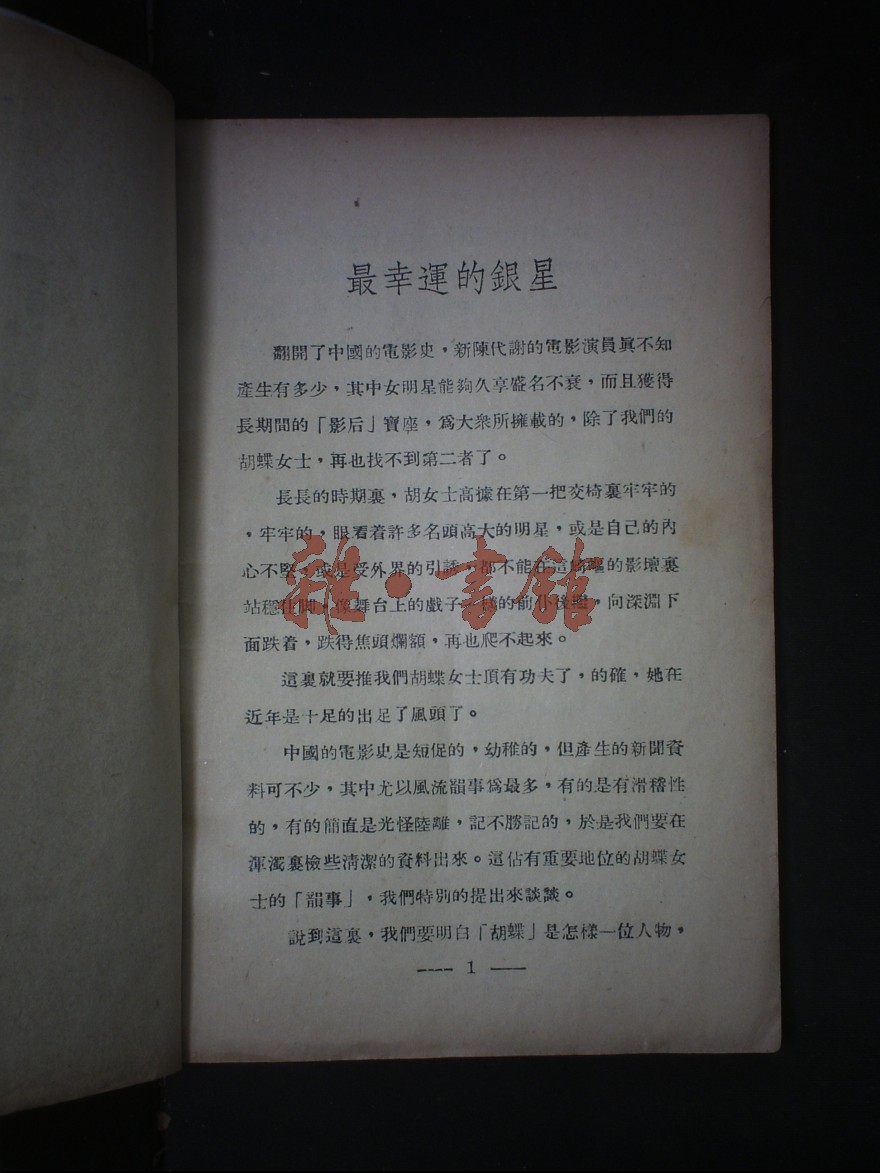 最幸運的銀星
翻開了中國的電影史，新陳代謝的電影演員眞不知
產生有多少，其中女明星能夠久享盛名不衰，而且獲得
長期間的「影后」寶座，爲大衆所擁載的，除了我們的
胡蝶女士，再也找不到第二者了。
長長的時期裏，胡女士高據在第一把交椅裏牢牢的
，牢牢的，眼看着許多名頭高大的明星，或是自己的內
心不堅，或是受外界的引誘，都不能在這的影壇裏
站穩住脚，像舞台上的戲子一樣的前仆後繼，向深淵下
面跌着，跌得焦頭爛額，再也爬不起來。
這裏就要推我們胡蝶女士頂有功夫了，的確，她在
近年是十足的出足了風頭了。
中國的電影史是短促的，幼稚的，但產生的新聞資
料可不少，其中尤以風流韻事爲最多，有的是有滑稽性
的，有的簡直是光怪陸離，記不勝記的，於是我們要在
渾濁裏檢些淸潔的資料出來。這佔有重要地位的胡蝶女
士的「韻事」，我們特別的提出來談談。
說到這裏，我們要明白「胡蝶」是怎樣一位人物，
---- 1 ——
雜·書館